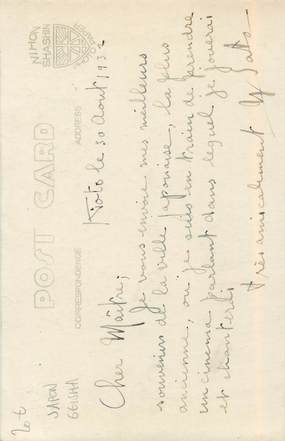 NIHON
SHASHIN
POST CARD
CORRESPONDENCE
ADDRESS
Kioto le 30 Août 1932
Cher Maître,
Je vous envoie mes meilleurs
souvenirs de la ville Japonaise, la plus
ancienne, où je suis en train de prendre
un cinema parlant dans lequel je jouerai
et chanterai.
Très amicalement Y Sato
206
JAPON
GEISHA